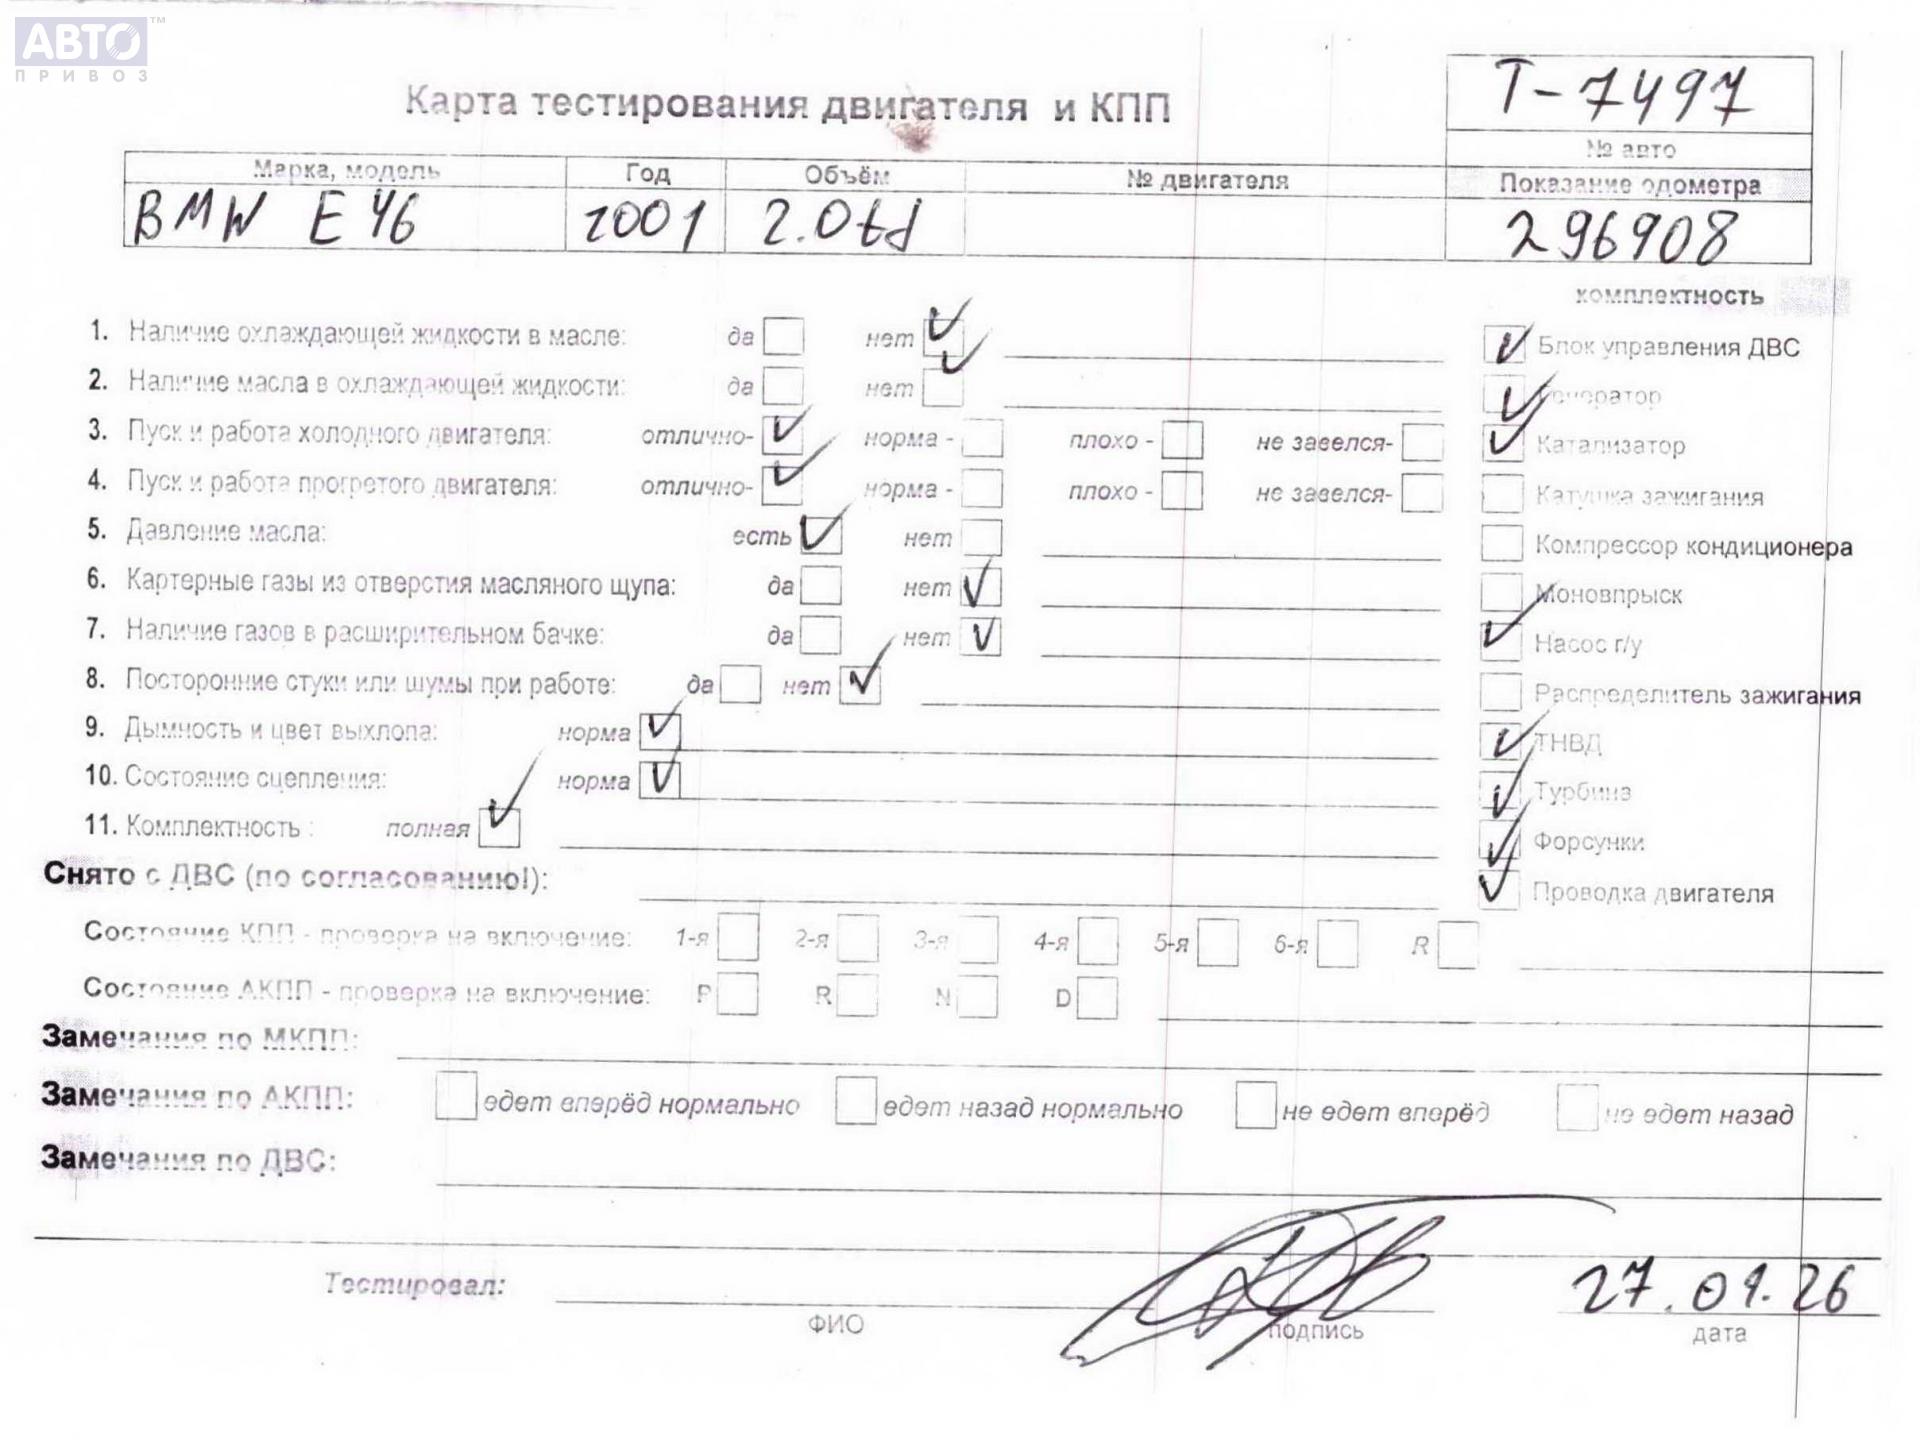 АВТО™
ПРИВОЗ
Карта тестирования двигателя и КПП
Т-7497
№ авто
Марка, модель Год Объём № двигателя Показание одометра
BMW E46 2001 2.0td 296908
комплектность
1. Наличие охлаждающей жидкости в масле: да нет Блок управления ДВС
2. Наличие масла в охлаждающей жидкости: да нет Генератор
3. Пуск и работа холодного двигателя: отлично- норма - плохо - не завелся- Катализатор
4. Пуск и работа прогретого двигателя: отлично- норма - плохо - не завелся- Катушка зажигания
5. Давление масла: есть нет Компрессор кондиционера
6. Картерные газы из отверстия масляного щупа: да нет Моновпрыск
7. Наличие газов в расширительном бачке: да нет Насос г/у
8. Посторонние стуки или шумы при работе: да нет Распределитель зажигания
9. Дымность и цвет выхлопа: норма ТНВД
10. Состояние сцепления: норма Турбина
11. Комплектность : полная Форсунки
Снято с ДВС (по согласованию!): Проводка двигателя
Состояние КПП - проверка на включение: 1-я 2-я 3-я 4-я 5-я 6-я R
Состояние АКПП - проверка на включение: P R N D
Замечания по МКПП:
Замечания по АКПП: едет вперёд нормально едет назад нормально не едет вперёд не едет назад
Замечания по ДВС:
Тестировал: 27.01.26
ФИО подпись дата